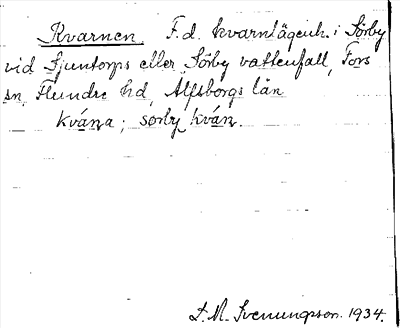 Kvarnen. F.d. kvarnlägenh. i Sörby
vid Sjuntorps eller Sörby vattenfall, Fors
sn, Flundre hd, Älfsborgs län
kvá̤na; sörby kván.
S. M. Svenungsson. 1934.